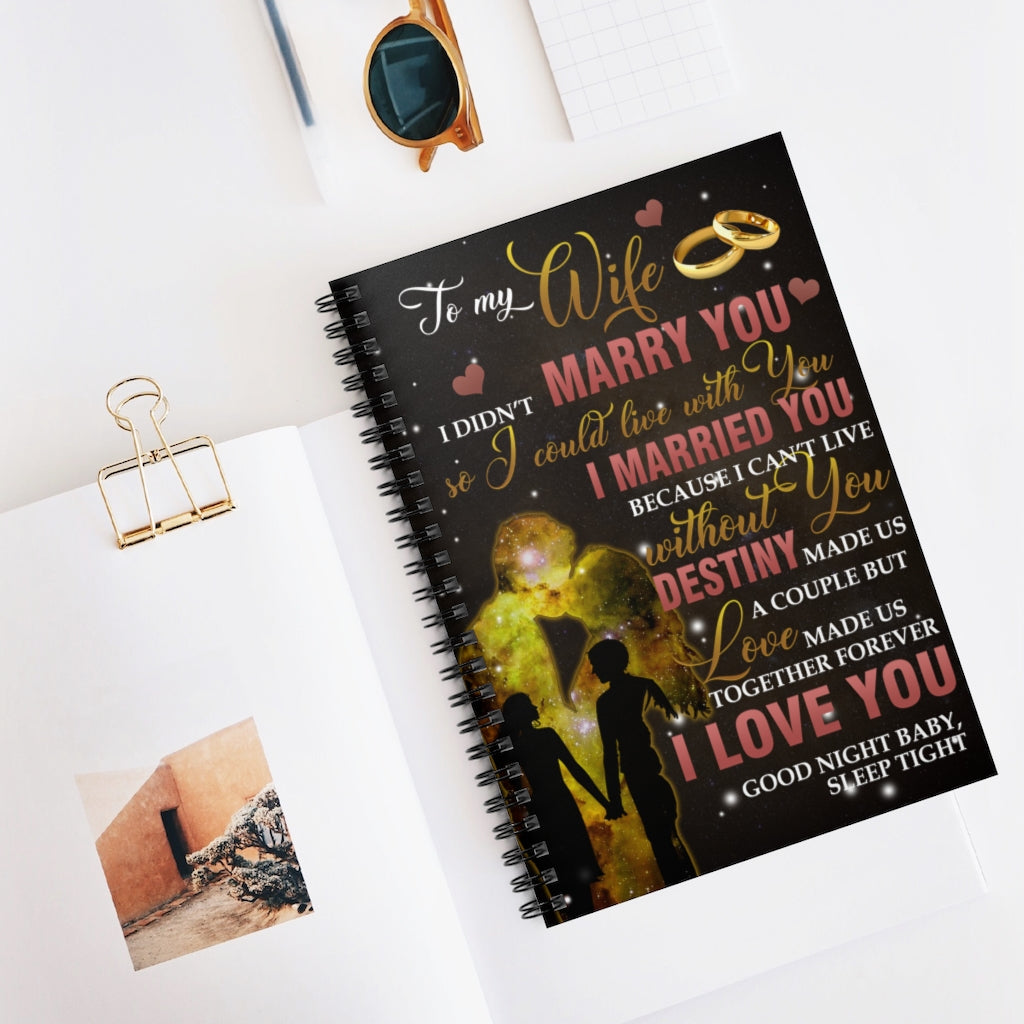 To my Wife
I DIDN'T MARRY YOU
so I could live with You
I MARRIED YOU
BECAUSE I CAN'T LIVE
without You
DESTINY MADE US
A COUPLE BUT
Love MADE US
TOGETHER FOREVER
I LOVE YOU
GOOD NIGHT BABY,
SLEEP TIGHT